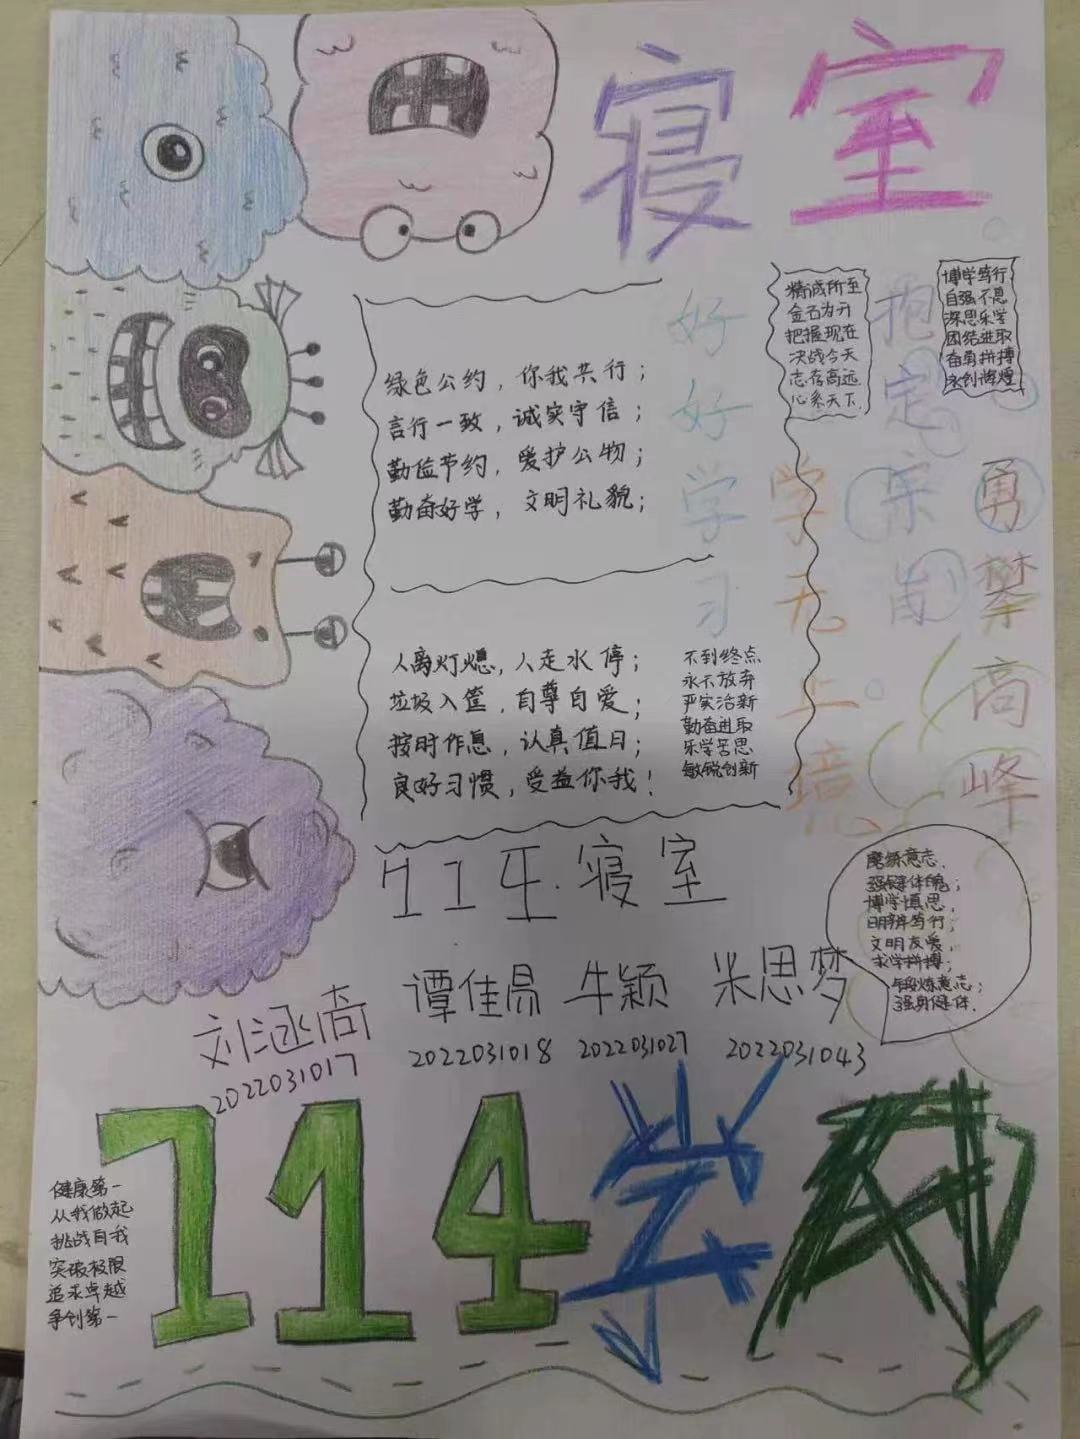 寝室
精诚所至
金石为开
把握现在
决战今天
志存高远
心系天下.
博学笃行
自强不息
深思乐学
团结进取
奋勇拼搏
永创辉煌
绿色公约，你我共行；
言行一致，诚实守信；
勤俭节约，爱护公物；
勤奋好学，文明礼貌；
好好学习
学无止境
抱定宗旨
勇攀高峰
人离灯熄，人走水停；
垃圾入筐，自尊自爱；
按时作息，认真值日；
良好习惯，受益你我！
不到终点
永不放弃
严实活新
勤奋进取
乐学善思
敏锐创新
寝室
磨练意志，
强健体魄；
博学慎思，
明辨笃行；
文明友爱，
求学拼搏；
锻炼意志；
强身健体.
刘涵奇 谭佳易 牛颖 米思梦
2022031017 2022031018 2022031027 2022031043
健康第一
从我做起
挑战自我
突破极限
追求卓越
争创第一
114